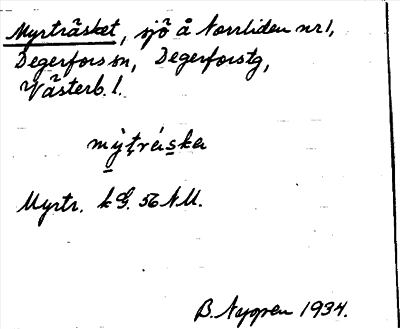 Myrträsket, sjö å Norrliden nr 1,
Degerfors sn, Degerforstg,
Västerb. l.
mỳt̨ráska
Myrtr. k G. 56 NU.
B. Nygren 1934.